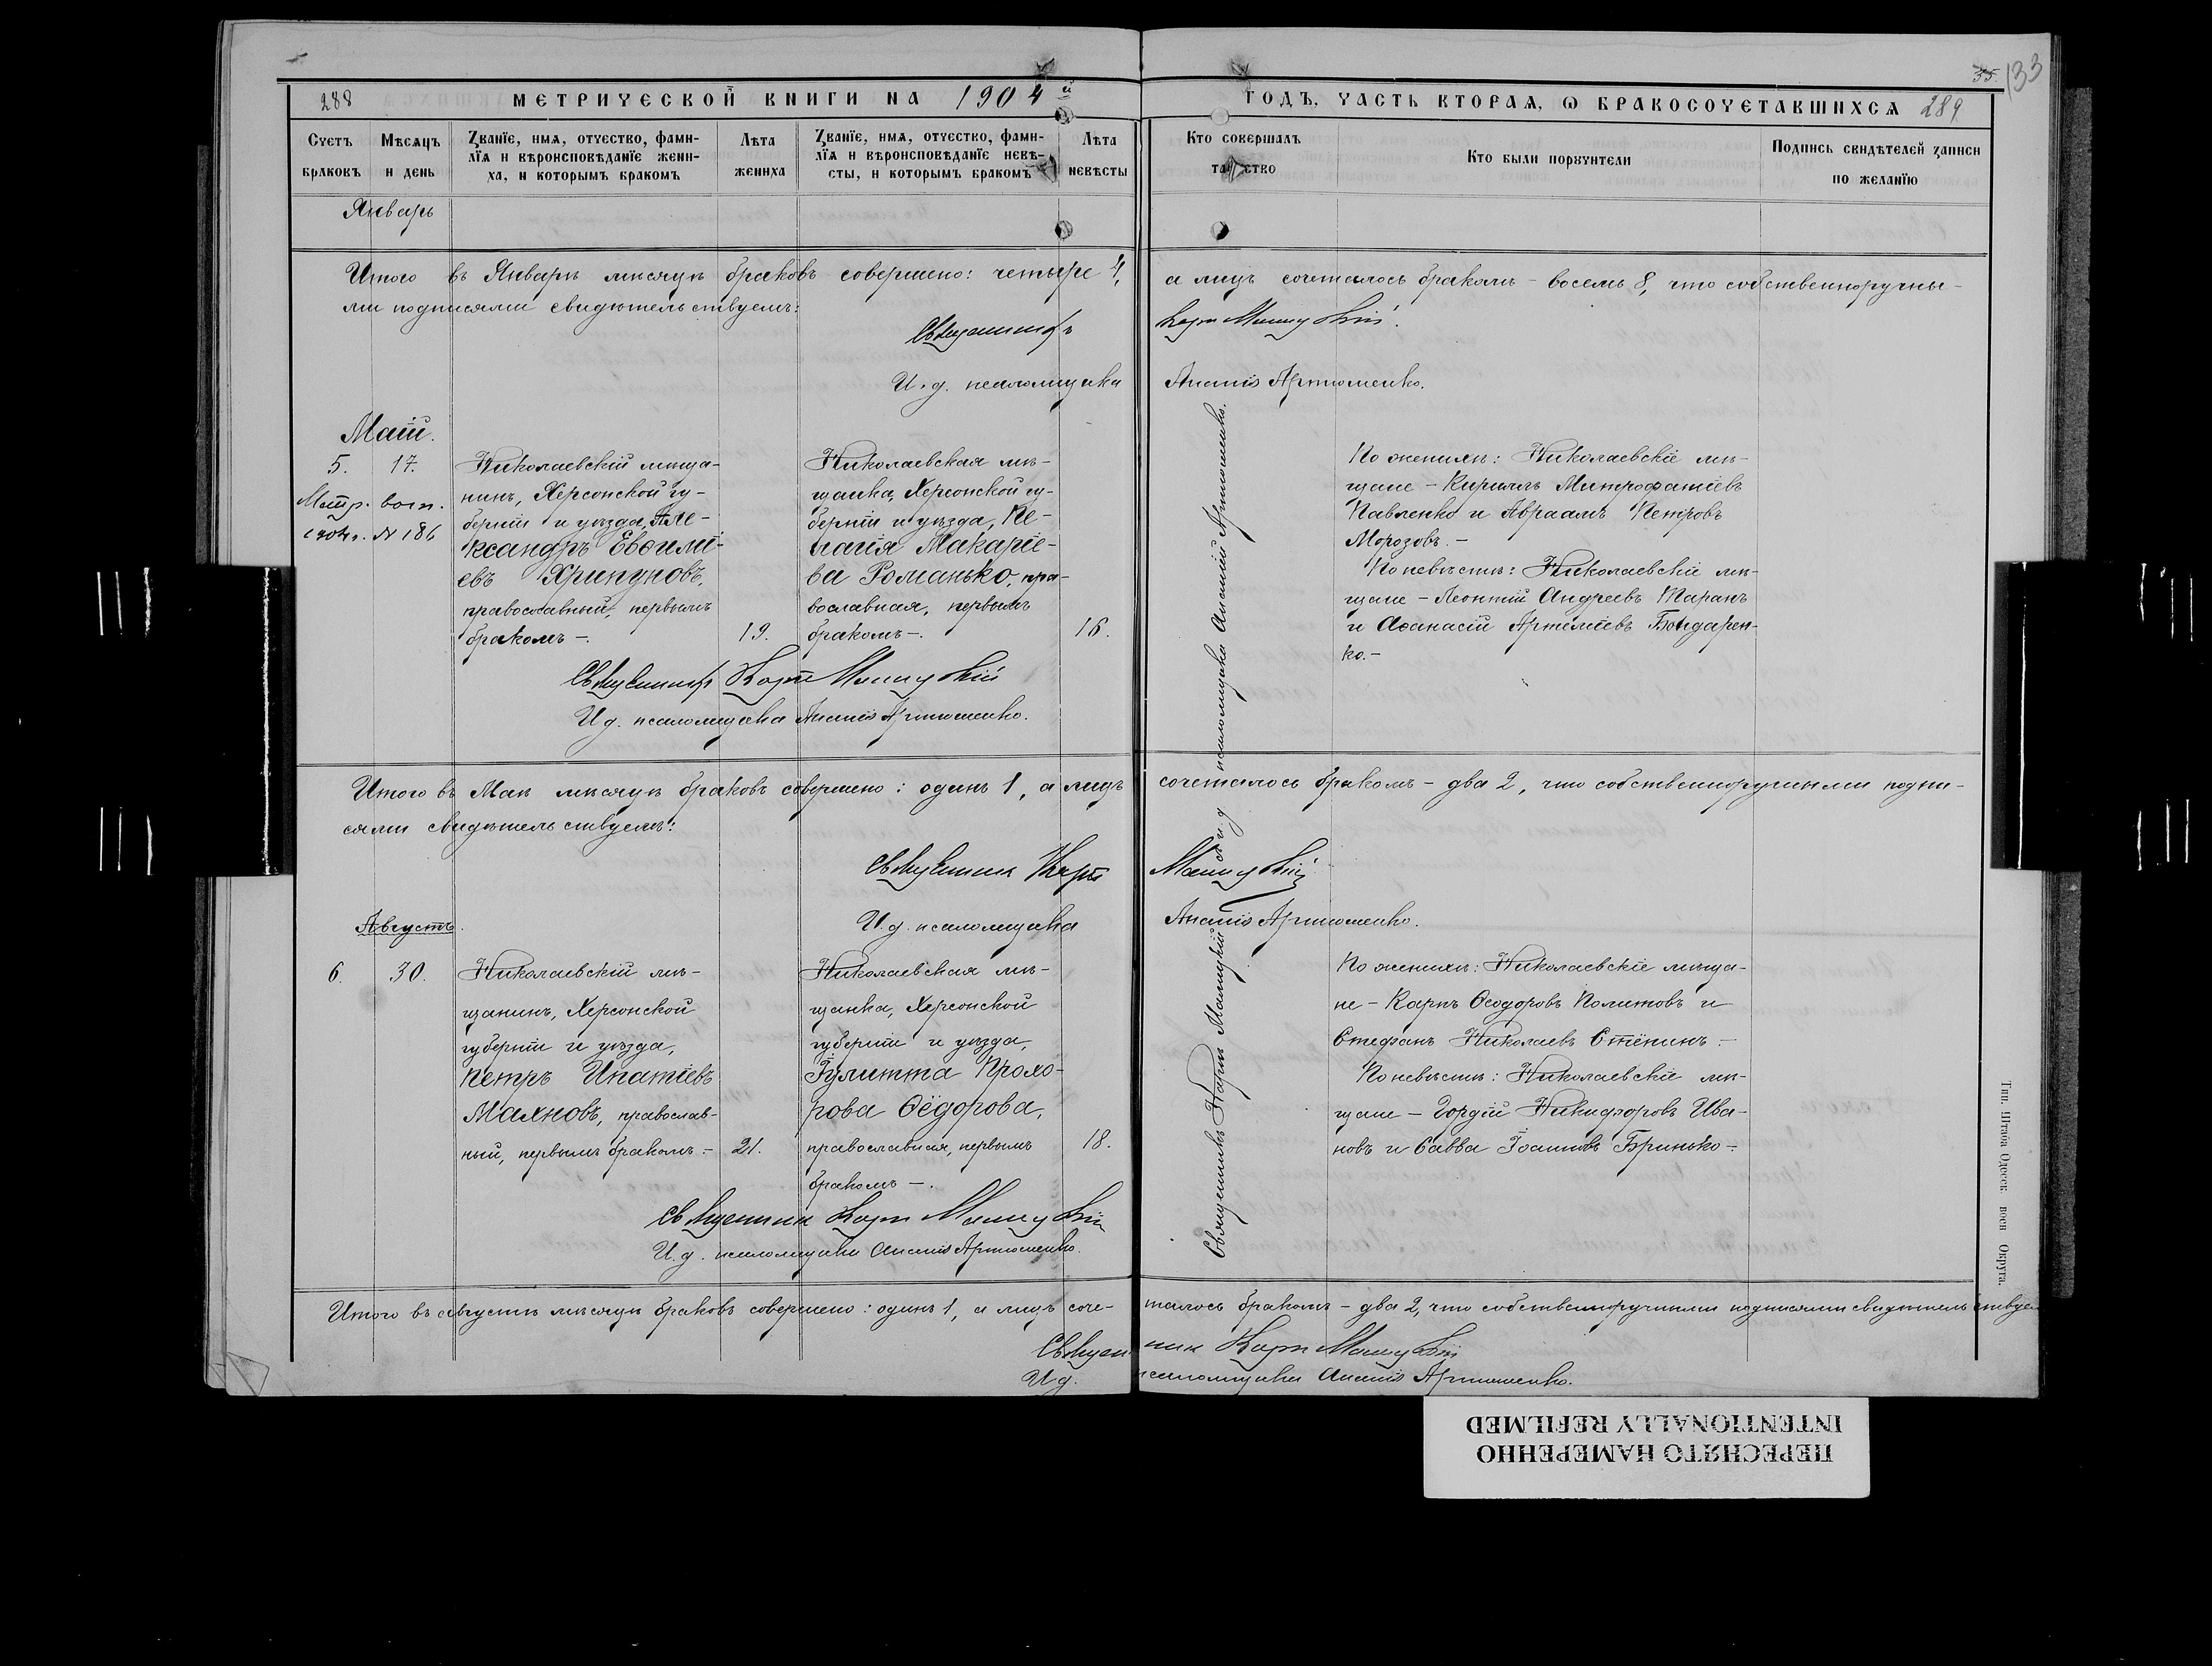 288
МЕТРИЧЕСКОЙ КНИГИ НА 1904й
ГОДЪ, ЧАСТЬ ВТОРАѦ, Ѡ БРАКОСОЧЕТАВШИХСѦ
289
35.
133
Счетъ браковъ
Мѣсѧцъ и день
Званїе, имѧ, отчество, фами-
лїѧ и вѣроисповѣданїе жени-
ха, и которымъ бракомъ
Лѣта жениха
Званїе, имѧ, отчество, фами-
лїѧ и вѣроисповѣданїе невѣ-
сты, и которымъ бракомъ
Лѣта невѣсты
Кто совершалъ
таинство
Кто были поручители
Подпись свидѣтелей записи
по желанїю
Январь
Итого въ Январѣ мѣсяцѣ браковъ совершено: четыре 4, а лицъ сочеталось бракомъ – восемь 8, что собственноручны-
ми подписями свидѣтельствуемъ:
Священникъ Карпъ
И. д. псаломщика Ананія Артюшенко.
Май.
5. 17.
Метр. вып.
1904 г. № 186
Николаевскій мѣща-
нинъ, Херсонской гу-
берніи и уѣзда, Але-
ксандръ Евѳимі-
евъ Хрипуновъ,
православный, первымъ
бракомъ –.
19.
Николаевская мѣ-
щанка, Херсонской гу-
берніи и уѣзда, Пе-
лагія Макаріе-
ва Романько, пра-
вославная, первымъ
бракомъ –.
16.
По женихѣ: Николаевскіе мѣ-
щане – Кириллъ Митрофаніевъ
Павленко и Авраамъ Петровъ
Морозовъ. –
По невѣстѣ: Николаевскіе мѣ-
щане – Леонтій Андреевъ Таранъ
и Аѳанасій Артеміевъ Бондарен-
ко. –
Священникъ Карпъ
И д. псаломщика Ананія Артюшенко.
Итого въ Маѣ мѣсяцѣ браковъ совершено: одинъ 1, а лицъ сочеталось бракомъ – два 2, что собственноручными подпи-
сями свидѣтельствуемъ:
Священникъ Карпъ
И. д. псаломщика Ананія Артюшенко.
Августъ.
6. 30.
Николаевскій мѣ-
щанинъ, Херсонской
губерніи и уѣзда,
Петръ Ипатіевъ
Махновъ, православ-
ный, первымъ бракомъ –
21.
Николаевская мѣ-
щанка, Херсонской
губерніи и уѣзда,
Іулитта Прохо-
рова Ѳёдорова,
православная, первымъ
бракомъ –.
18.
Священникъ Карпъ съ и. д псаломщика Ананіи Артюшенко.
По женихѣ: Николаевскіе мѣща-
не – Карпъ Ѳеодоровъ Политовъ и
Стефанъ Николаевъ Стёпинъ –
По невѣстѣ: Николаевскіе мѣ-
щане – Гордій Никифоровъ Ива-
новъ и Савва Іоанновъ Бринько –.
Священникъ Карпъ
И. д. псаломщика Ананія Артюшенко.
Итого въ августѣ мѣсяцѣ браковъ совершено: одинъ 1, а лицъ соче-талось бракомъ – два 2, что собственноручными подписями свидѣтельствуем
Священникъ Карпъ
И д. псаломщика Ананія Артюшенко.
Тип. Штаба Одесск. воен Округа.
ПЕРЕСНЯТО НАМЕРЕННО
INTENTIONALLY REFILMED